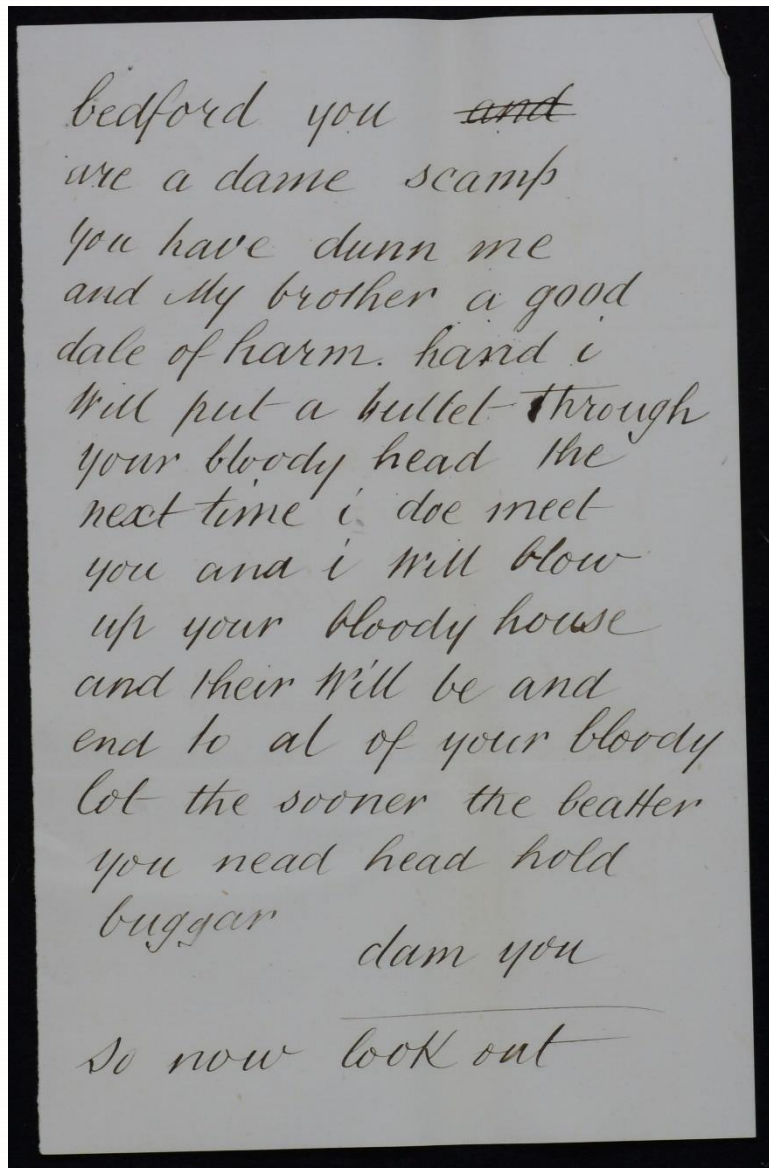 bedford you and
are a dame scamp
you have dunn me
and My brother a good
dale of harm. hand i
Will put a bullet through
your bloody head the
next time i doe meet
you and i Will blow
up your bloody house
and their Will be and
end to al of your bloody
lot the sooner the beatter
you nead head hold
buggar
dam you
so now look out